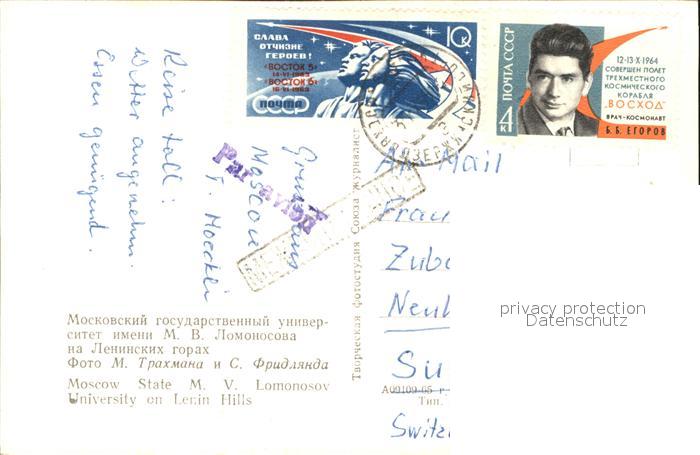 СЛАВА
ОТЧИЗНЕ
ГЕРОЕВ!
«ВОСТОК 5»
14-VI-1963
«ВОСТОК 6»
16-VI-1963
ПОЧТА
СССР
10к
ПОЧТА СССР
4к
12-13·X·1964
СОВЕРШЕН ПОЛЕТ
ТРЕХМЕСТНОГО
КОСМИЧЕСКОГО
КОРАБЛЯ
"ВОСХОД"
ВРАЧ-КОСМОНАВТ
Б. Б. ЕГОРОВ
Keine
Wetter angenehm.
Essen genügend.
Gruss aus
Moscou
Par avion
Air Mail
Frau
Zub
Neu
Su
Switz
Творческая фотостудия Союза журналист
Московский государственный универ-
ситет имени М. В. Ломоносова
на Ленинских горах
Фото М. Трахмана и С. Фридлянда
Moscow State M. V. Lomonosov
University on Lenin Hills
А09109-65 г
Тип.
privacy protection
Datenschutz